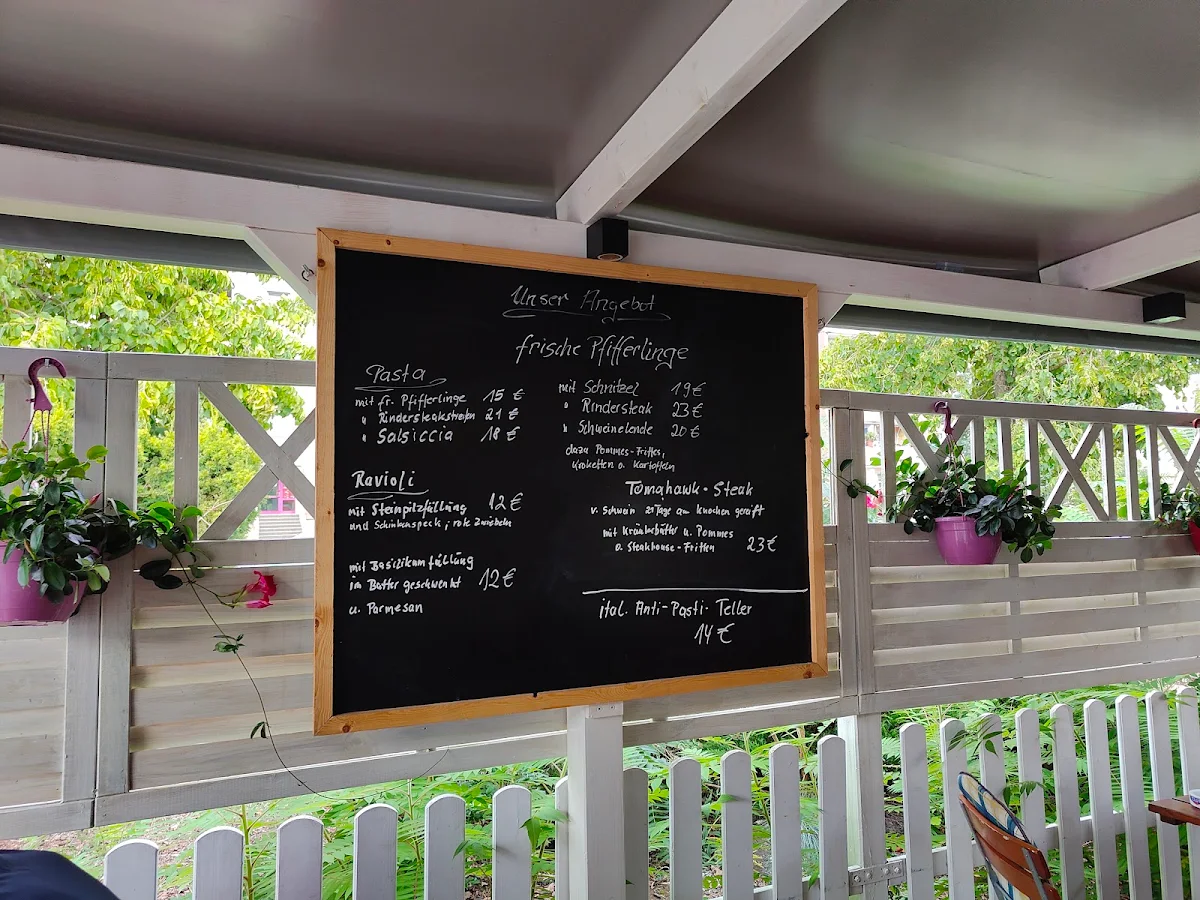 Unser Angebot
frische Pfifferlinge
Pasta
mit fr. Pfifferlinge 15 €
" Rindersteakstreifen 21 €
" Salsiccia 18 €
Ravioli
mit Steinpilzfüllung 12 €
und Schinkenspeck, rote Zwiebeln
mit Basilikumfüllung
in Butter geschwenkt 12 €
u. Parmesan
mit Schnitzel 19 €
" Rindersteak 23 €
" Schweinelende 20 €
dazu Pommes-Frittes,
Kroketten o. Kartoffeln
Tomahawk-Steak
v. Schwein 21 Tage am Knochen gereift
mit Kräuterbutter u. Pommes
o. Steakhouse-Fritten 23 €
ital. Anti-Pasti-Teller
14 €